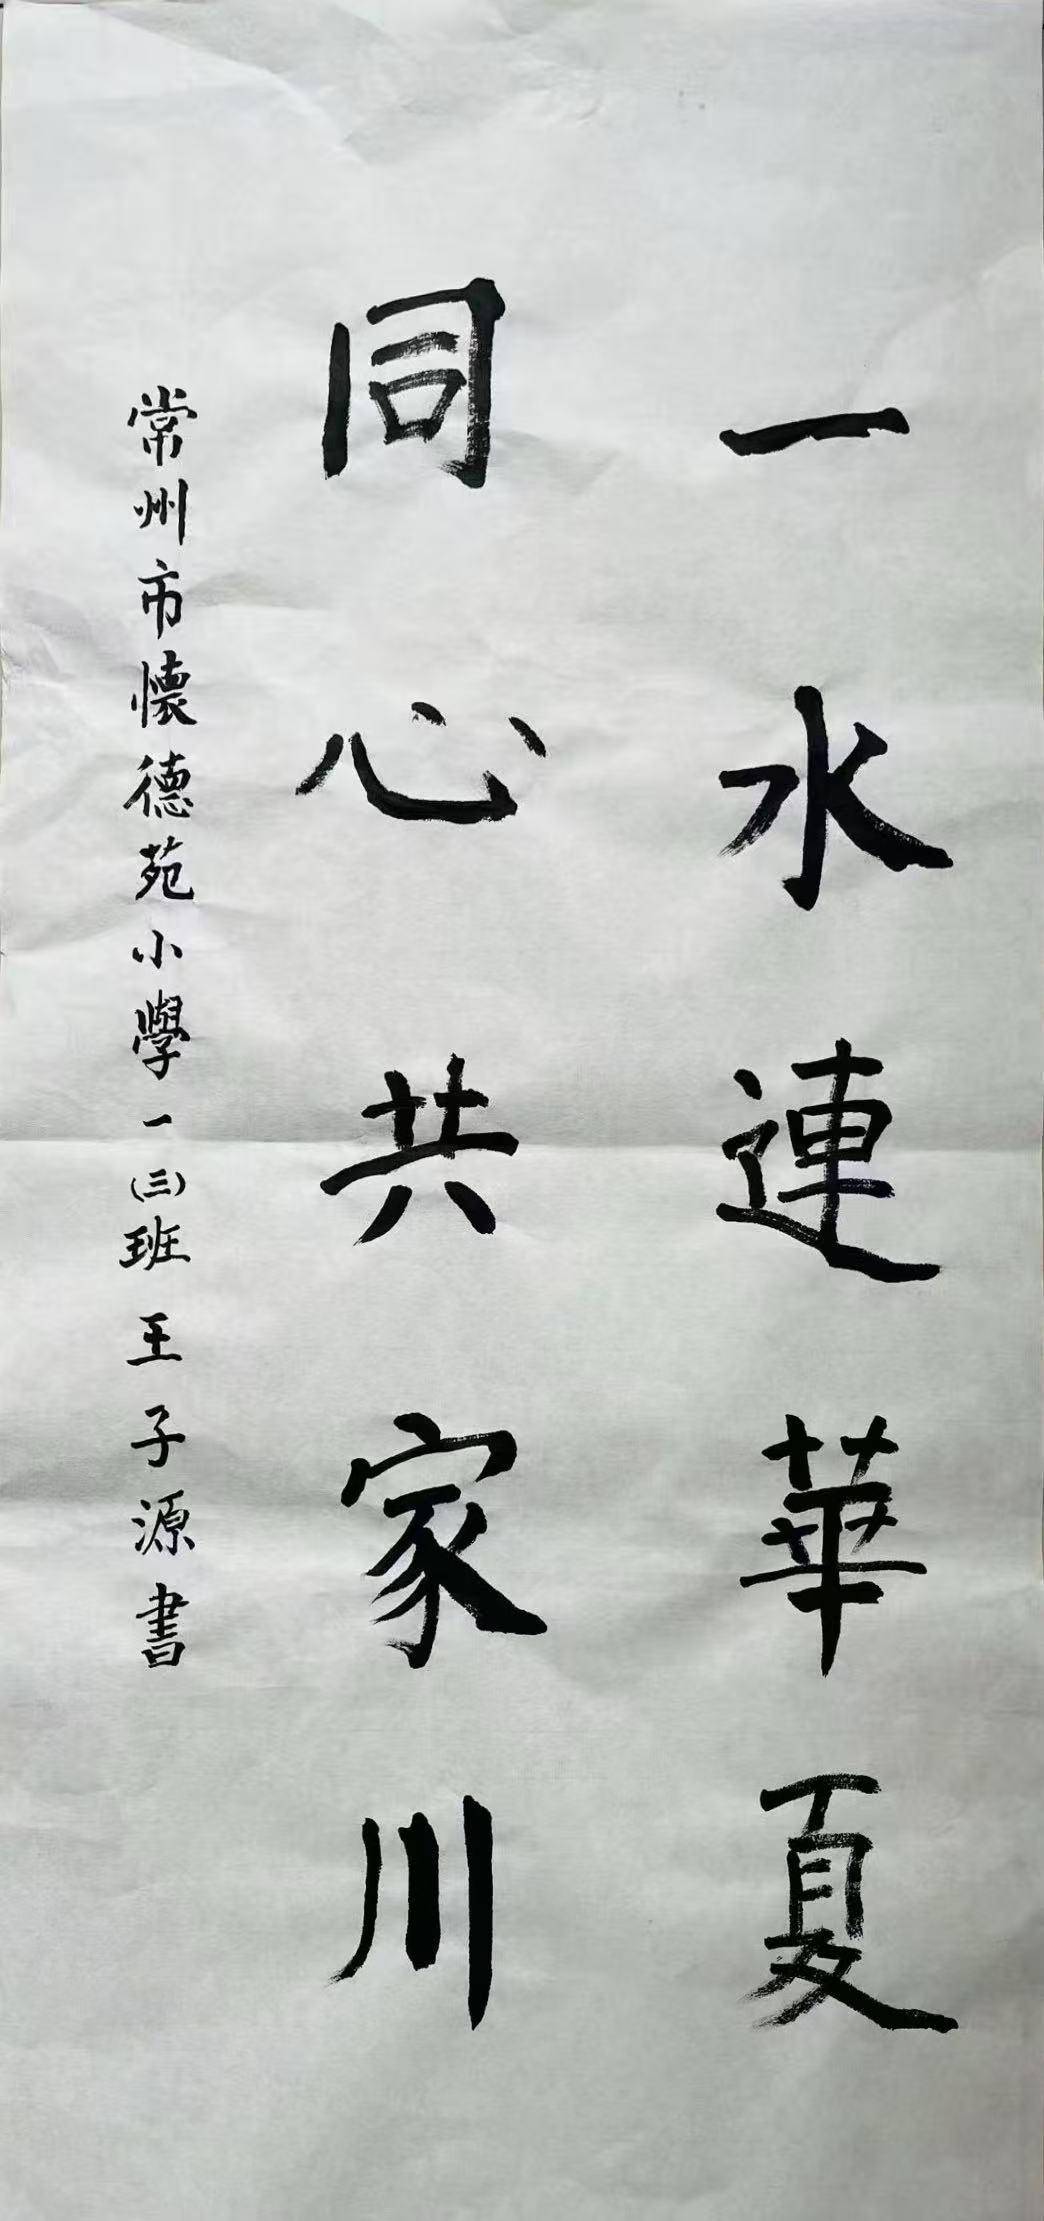 一水連華夏
同心共家川
常州市懷德苑小學一(三)班王子源書